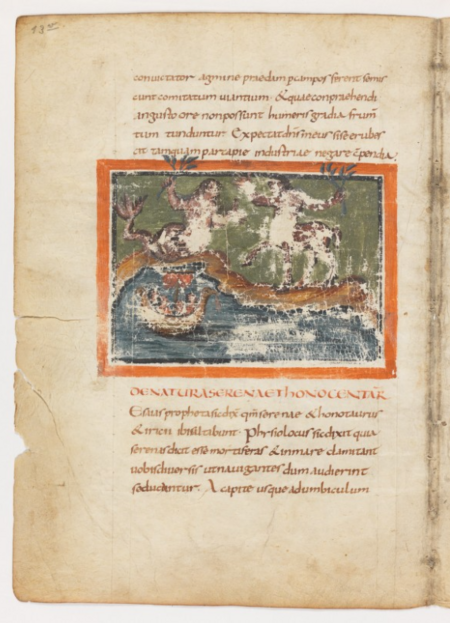 13v
conuictator agmine praedam p campos ferent semis
cunt comitatum uiantium · & quae conpraehendi
angusto ore non possunt humeris gradia frum̄
tum tunduntur Expectat dn̄s meus sise erubes
cit tamquam par apie industriae negare c̄pendia.
DE NATURA SERENAE ET HONOCENTAR̄
Esaias propheta sic dx̄ qm̄ serenae & honotaurus
& iricii ibi saltabunt · Phisiolocus sic dixit quia
serenas dicit esse mortiferas & in mare clamitant
uobis diuersis ut nauigantes dum audierint
soducuntur A capite usque ad umbiculum